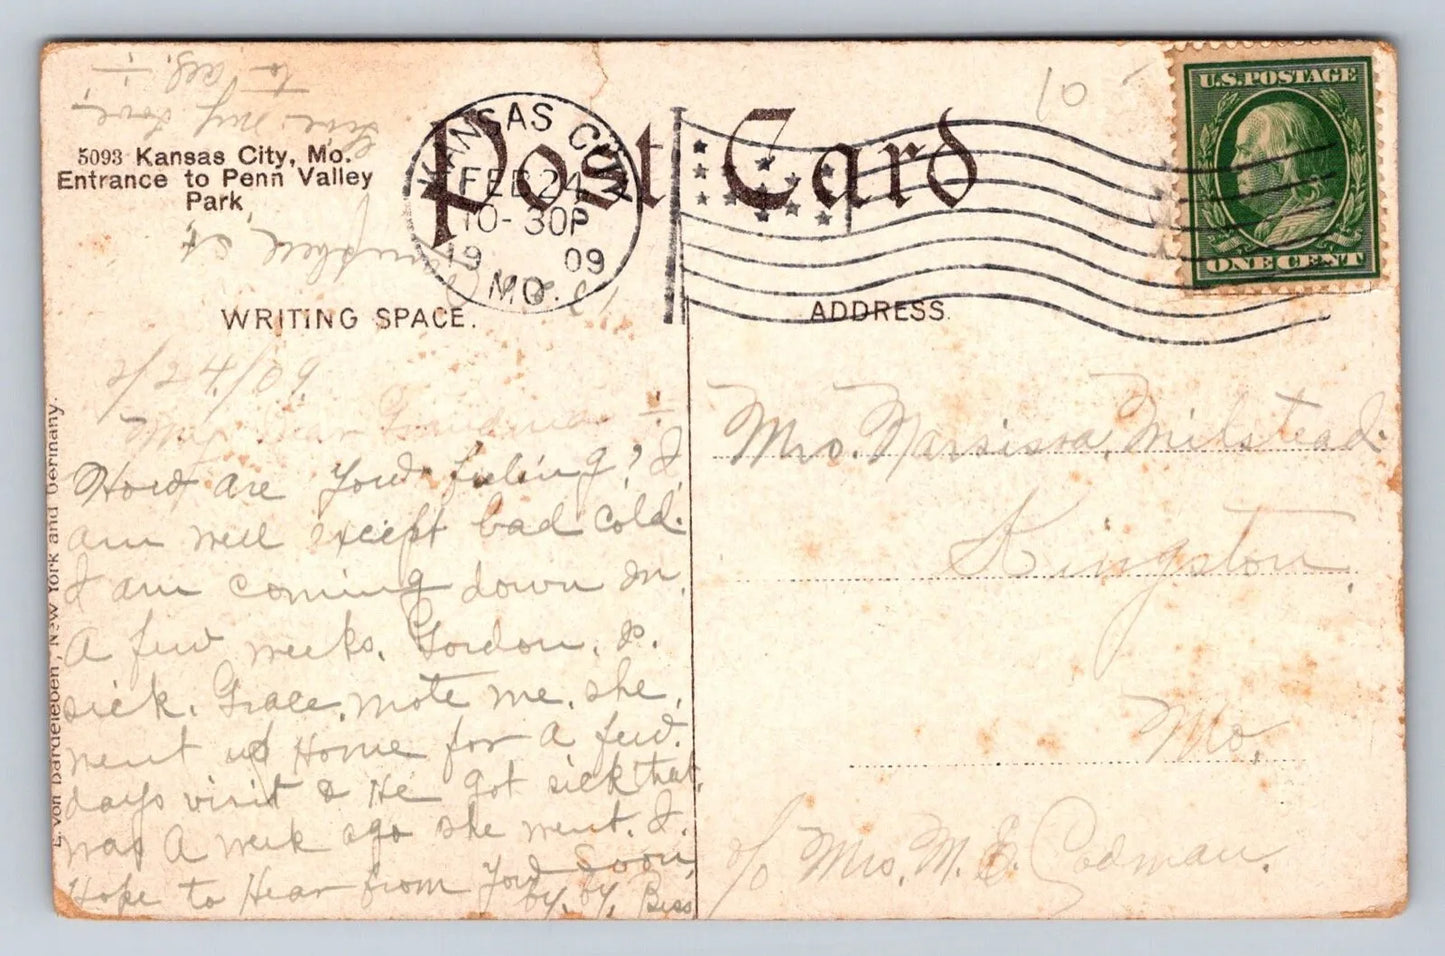 5093 Kansas City, Mo.
Entrance to Penn Valley
Park
Post Card
KANSAS CITY
FEB 24
10-30P
1909
MO.
U.S.POSTAGE
ONE CENT
10
WRITING SPACE.
ADDRESS.
2/24/09
My Dear Grandma
How are you feeling? I
am well except bad cold.
I am coming down in
A few weeks. Gordon. is.
sick. Grace. wrote me. she.
went up Home for A few.
days visit & He got sick that
was A week ago she went. I.
Hope to Hear from you soon
by. by. Bess
Give my love
to all.
Campbell St.
Mrs. Narsissa, Milstead.
Kingston.
Mo.
c/o Mrs. M. E. Codman.
L. von Bardeleben, New York and Germany.